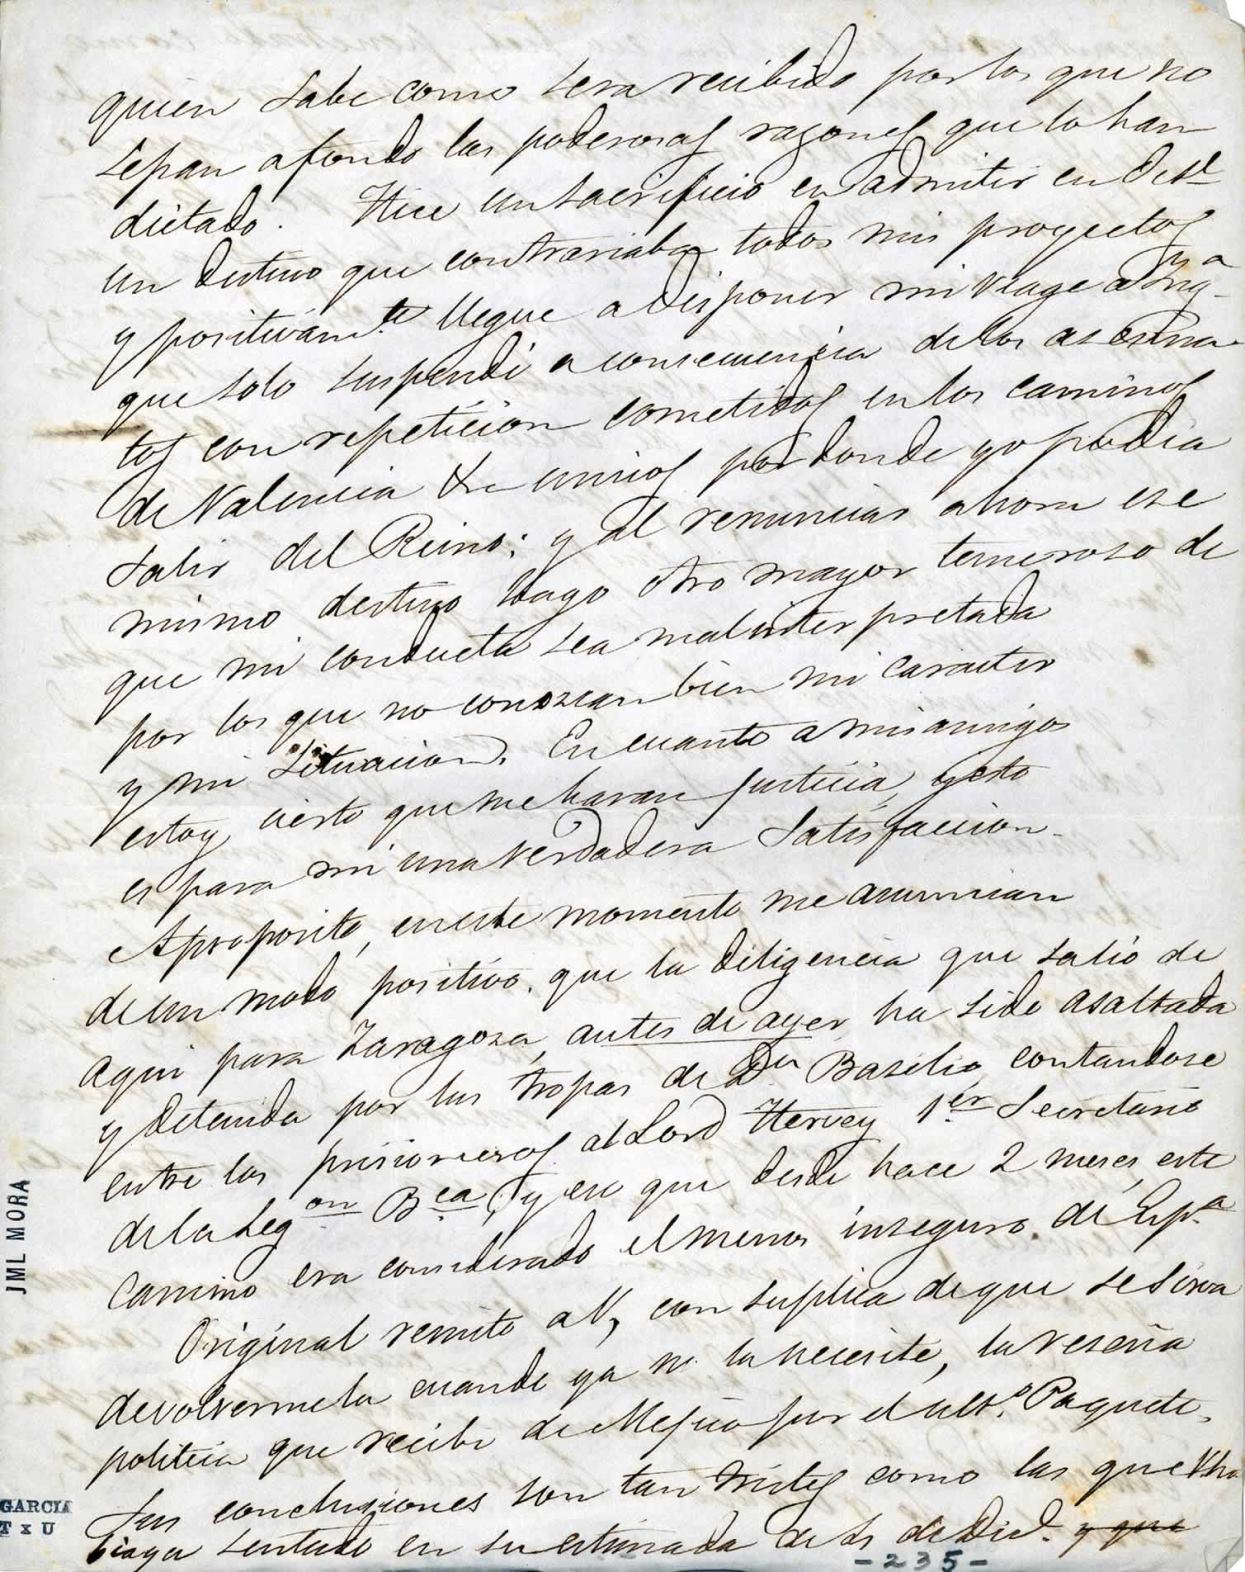 quien sabe como sera recibido por los que no
sepan afondo las poderosas razones que lo han
dictado. Hice un sacrificio en admitir en
un destino que contrariaba todos mis proyectos
y positivam.te llegue a disponer mi viage a Ing.a
que solo suspendi a consecuencia de los asesina-
tos con repeticion cometidos en los caminos
de Valencia &a unicos por donde yo podia
salir del Reino; y al renunciar ahora ese
mismo destino hago otro mayor temeroso de
que mi conducta sea mal interpretada
por los que no conozcan bien mi caracter
y mi situacion. En cuanto a mis amigos
estoy cierto que me haran justicia, y esto
es para mi una verdadera satisfaccion.
Aproposito, en este momento me anuncian
de un modo positivo, que la diligencia que salió de
aqui para Zaragoza, antes de ayer, ha sido asaltada
y detenida por las tropas de Dn Basilio, contandose
entre los prisioneros al Lord Hervey 1er Secretario
de la Legon Bca, y eso que desde hace 2 meses este
camino era considerado el menos inseguro de Esp.a
Original remito a V, con suplica de que se sirva
devolvermela cuando ya no la necesite, la reseña
politica que recibi de Mejico por el ult.o Paquete.
Sus conclusiones son tan tristes como las que V ha-
bia ya sentado en su estimada de de Dic.e y que
JML MORA
GARCIA
T x U
-235-